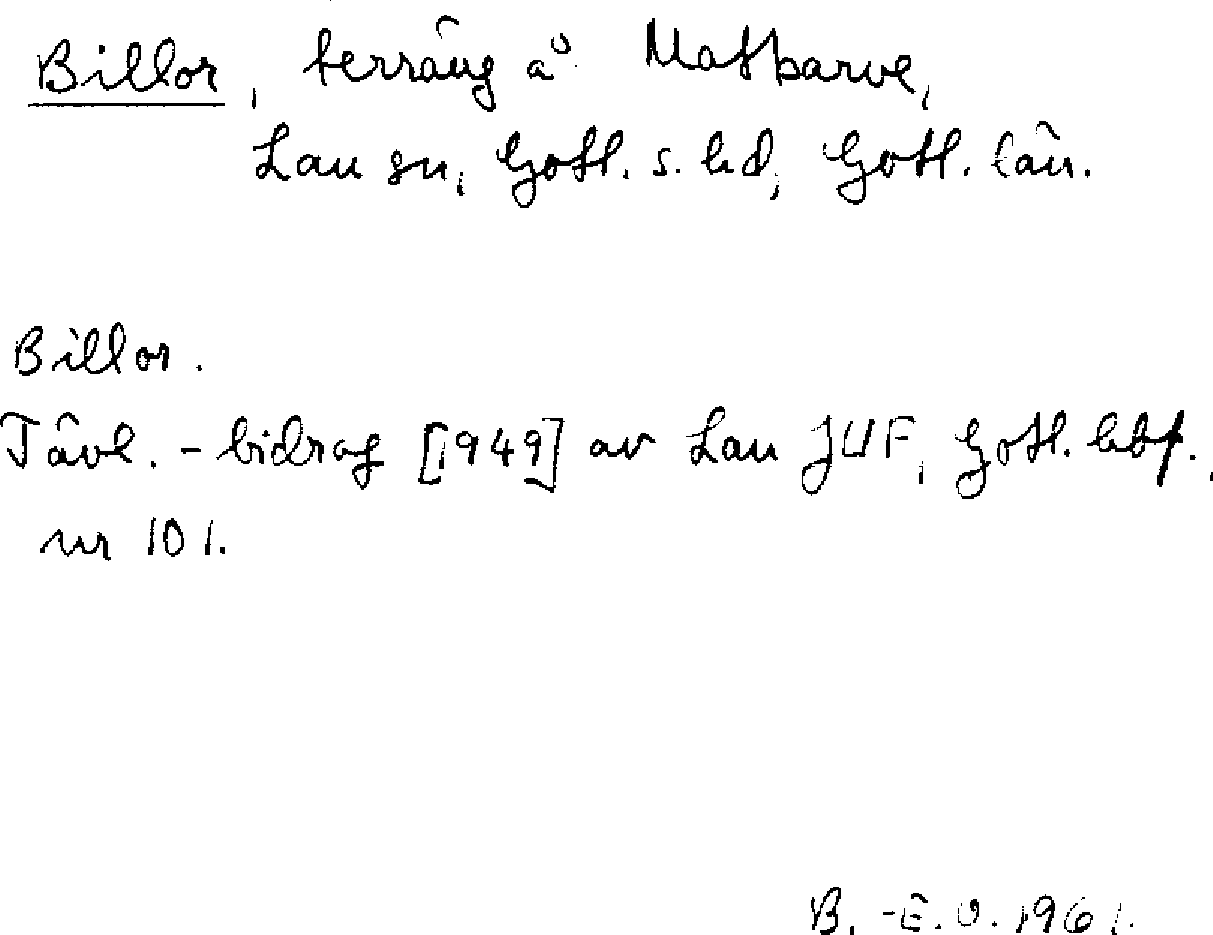 Billor, terräng å Mattsarve,
Lau sn, Gotl. s. hd, Gotl. län.
Billor.
Tävl. - bidrag [1949] av Lau JUF, Gotl. hbf.,
nr 101.
B. -E. O. 1961.